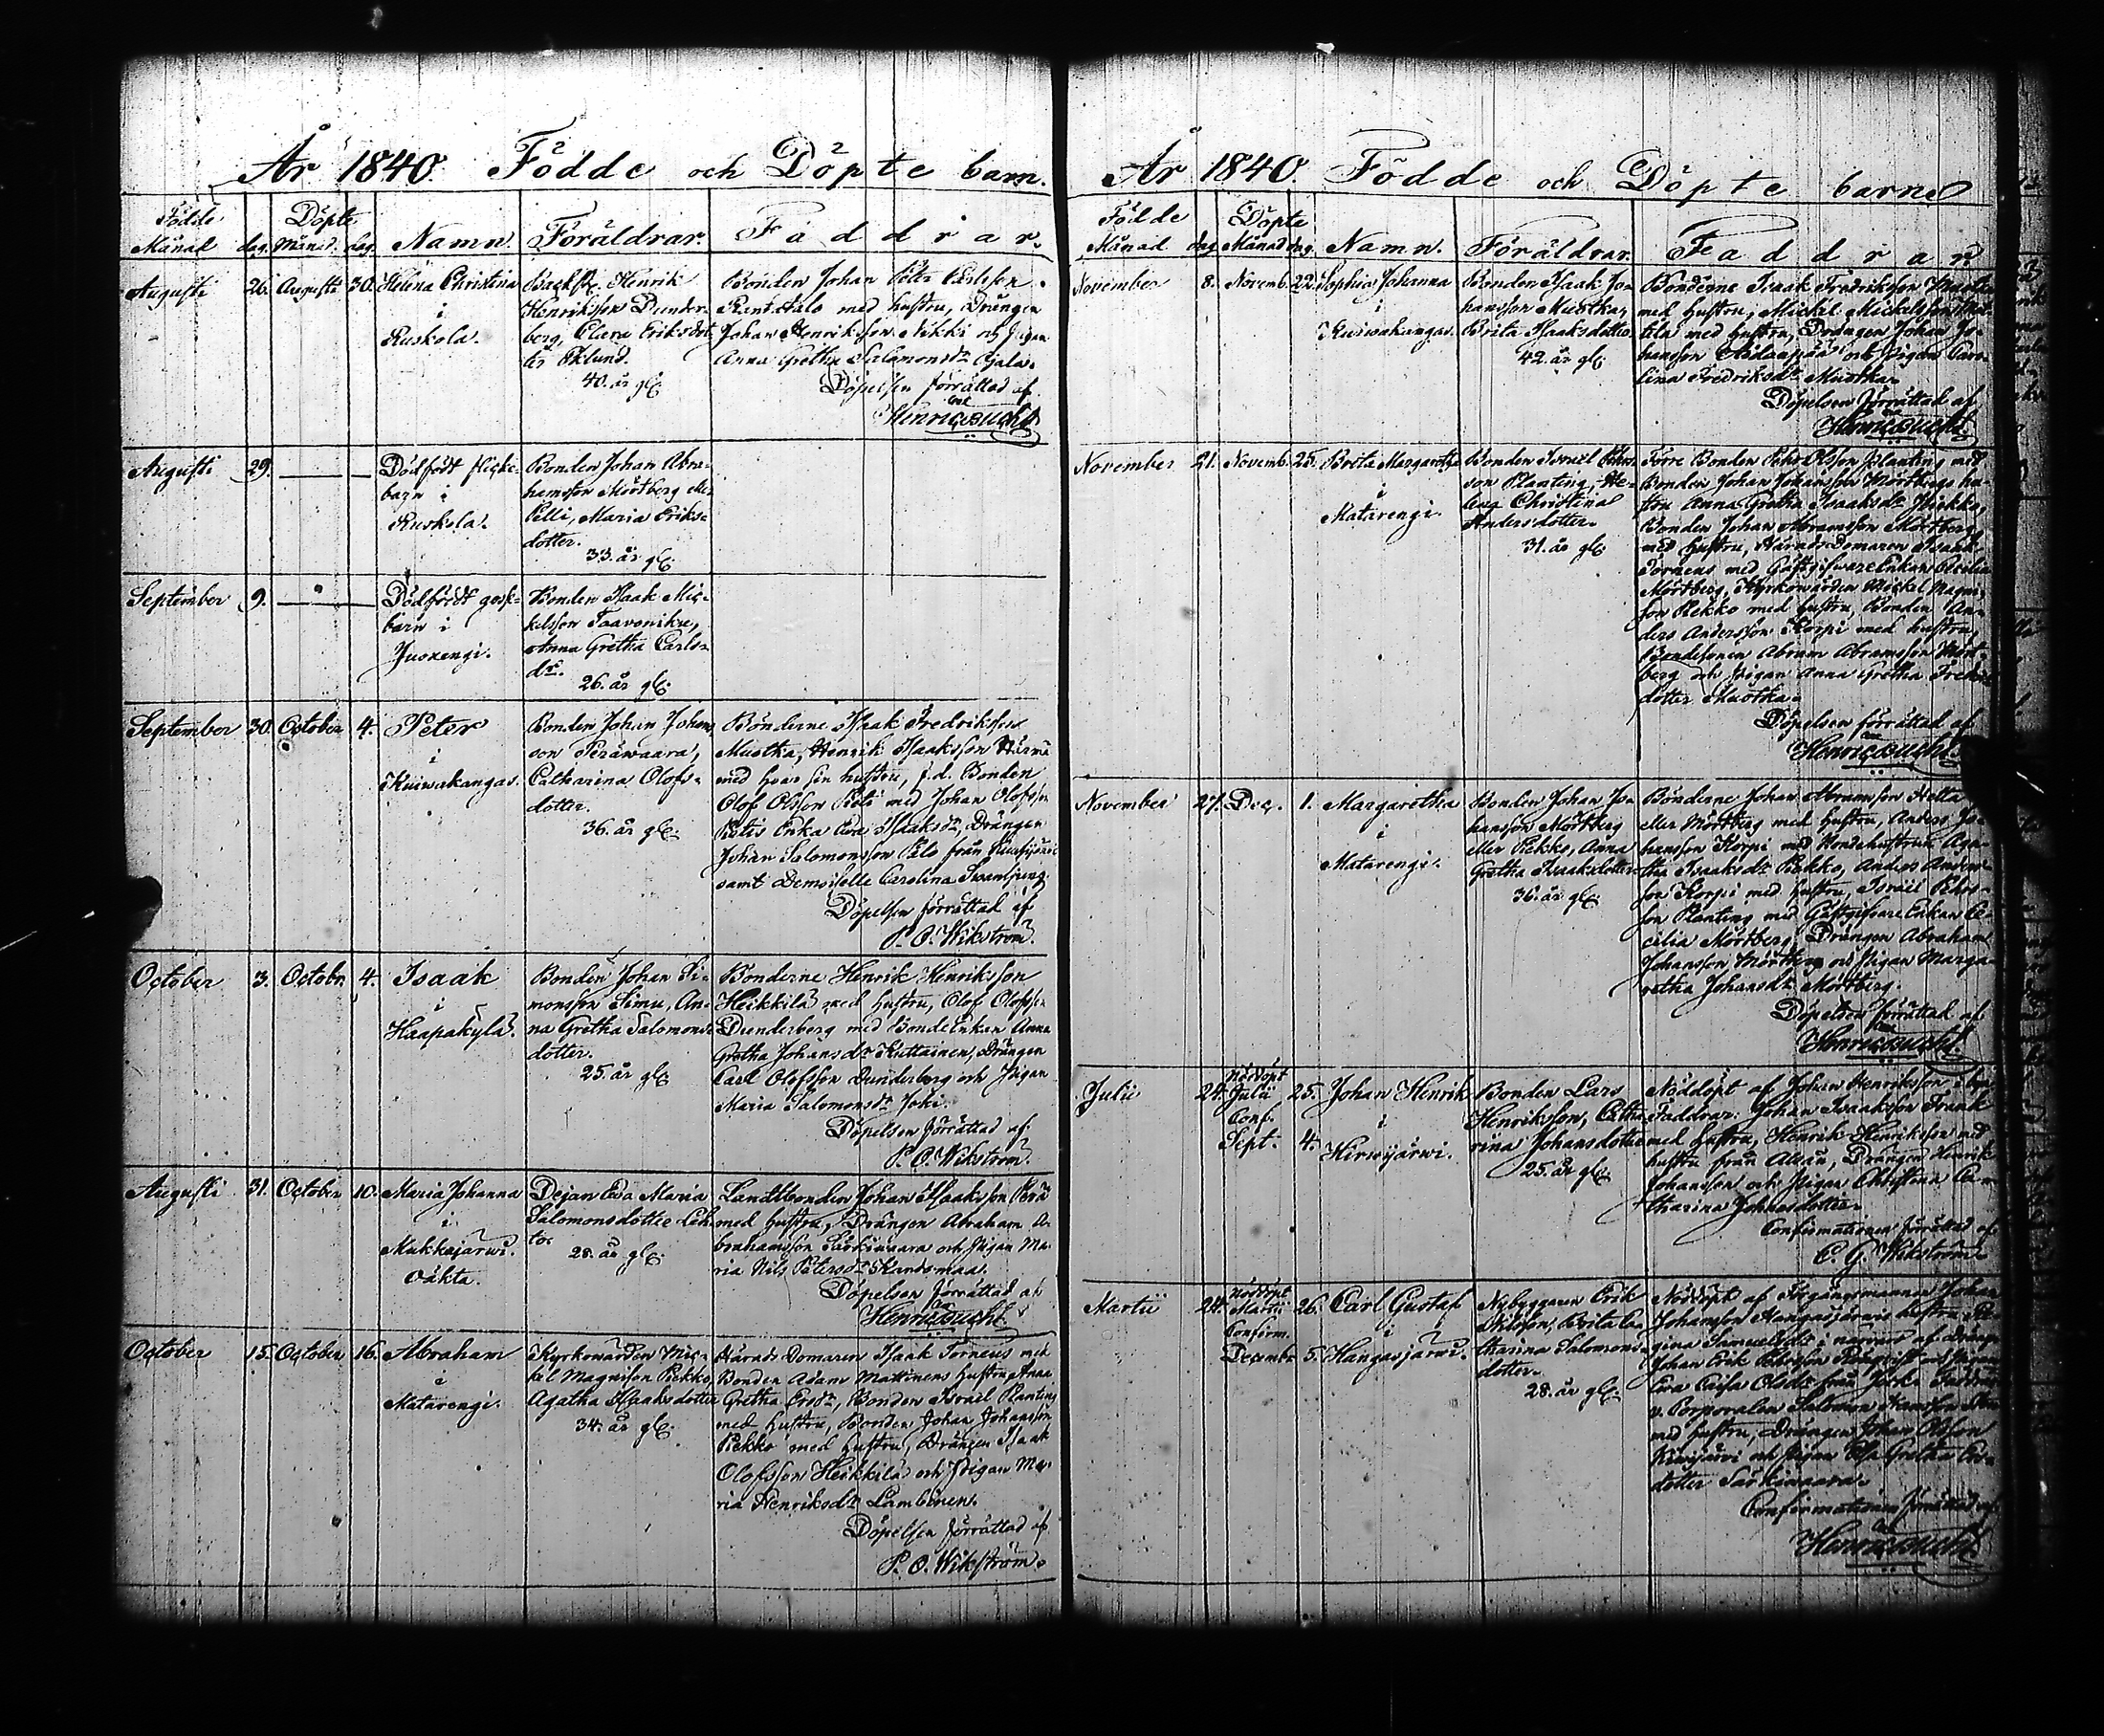 År 1840. Födde och Döpte barn.
Födde Månad dag. Döpte Månad. dag. Namn. Föräldrar. Faddrar.
Augusti 26. Augusti 30. Helena Christina
i
Ruskola.
Henrik
Henriksson Dunder-
berg, Clara Eriksdot-
ter Eklund.
40. år gl.
Bonden Johan Peter
Rantatalo med hustru, Drängen
Johan Henriksson Nikki och Pigan
Anna Gretha Salomonsdr
Döpelsen förrättad af
Henric Bucht
Augusti 29. Dödfödt flicke-
barn i
Ruskola.
Bonden Johan Abra-
hamsson Mörtberg eller
Pelli, Maria Eriks-
dotter.
33. år gl.
September 9. Dödfödt gosse-
barn i
Juoxengi.
Bonden Isaak Mic-
kelsson Taavoniku,
Anna Gretha Carls-
dr.
26. år gl.
September 30. October 4. Peter
i
Kuiwakangas.
Bonden Johan Johans-
son Peräwaara,
Catharina Olofs-
dotter.
36. år gl.
Bönderne Isaak Fredriksson
Muotka, Henrik Isaaksson
med hvar sin hustru, f.d. Bonden
Olof Olsson med Johan Olofsson
Enka Eva Isaaksdr, Drängen
Johan Salomonsson Palo från
samt Demoiselle Carolina
Döpelsen förrättad af
P. O. Wikström.
October 3. Octobr. 4. Isaak
i
Haapakylä.
Bonden Johan Si-
monsson Simu, An-
na Gretha Salomons-
dotter.
25. år gl.
Bönderne Henrik Henriksson
Heikkilä med hustru, Olof Olofsson
Dunderberg med Bondeenkan Anna
Gretha Johansdr Kuttainen, Drängen
Carl Olofsson Dunderberg och Pigan
Maria Salomonsdr Joki.
Döpelsen förrättad af
P. O. Wikström.
Augusti 31. October 10. Maria Johanna
i
Mukkajärwi.
Oäkta.
Dejan Eva Maria
Salomonsdotter Leh-
to.
28. år gl.
Landtbonden Johan Isaaksson Perä
med hustru, Drängen Abraham A-
brahamsson Särkiwaara och Pigan Ma-
ria Nils Petersdr
Döpelsen förrättad af
Henric Bucht
October 15. October 16. Abraham
i
Matarengi.
Kyrkowärden Mic-
kel Magnusson Piekko,
Agatha Isaaksdotter
34. år gl.
Härads Domaren Isaak Torneus med
Bonden Adam Mattinens hustru Anna
Gretha Ersdr, Bonden Israel Planting
med hustru, Bonden Johan Johansson
Piekko med hustru, Drängen Isaak
Olofsson Heikkilä och Pigan Ma-
ria Henriksdr Lambinen.
Döpelsen förrättad af
P. O. Wikström.
År 1840. Födde och Döpte barn
Födde Månad dag Döpte Månad dag. Namn. Föräldrar. Faddrar
November 8. Novemb. 22. Sophia Johanna
i
Kuiwakangas.
Bonden Isaak Jo-
hansson Muotka,
Brita Isaaksdotter.
42. år gl.
Bönderne Isaak Fredriksson Muotka
med hustru, Mickel Mickelsson
med hustru, Drängen Johan Jo-
hansson och Pigan Caro-
lina Fredriksdr Muotka
Döpelsen förrättad af
Henric Bucht
November 21. Novemb. 25. Brita Margaretha
i
Matarengi.
Bonden Israel Pehrs-
son Planting, He-
lena Christina
Andersdotter.
31. år gl.
Förre Bonden Pehr Olsson Planting med
Bonden Johan Johansson Mörtbergs hu-
stru Anna Gretha Isaaksdr Piekko,
Bonden Johan Abramsson Mörtberg
med hustru, Härads Domaren Isaak
Torneus med Gästgifware Enkan Cecilia
Mörtberg, Kyrkowärden Mickel Magnus-
son Piekko med hustru, Bonden An-
ders Andersson Korpi med hustru,
Bondesonen Abram Abramsson Mört-
berg och Pigan Anna Gretha Fredriks-
dotter Muotka
Döpelsen förrättad af
Henric Bucht
November 27. Dec. 1. Margaretha
i
Matarengi.
Bonden Johan Jo-
hansson Mörtberg
eller Piekko, Anna
Gretha Isaaksdotter
36. år gl.
Bönderne Johan Abramsson
eller Mörtberg med hustru, Anders Jo-
hansson Korpi med Bondehustrun Aga-
tha Isaaksdr Piekko, Anders Anders-
son Korpi med hustru, Israel Pehrs-
son Planting med Gästgifware Enkan Ce-
cilia Mörtberg, Drängen Abraham
Johansson Mörtberg och Pigan Marga-
retha Johansdr Mörtberg.
Döpelsen förrättad af
Henric Bucht
Julii 24. Nöddöpt Julii 25. Johan Henrik
Conf.
Sept. 4.
i
Hirwijärwi.
Bonden Lars
Henriksson, Catha-
rina Johansdotter
25. år gl.
Nöddöpt af Johan Henriksson i byn
Faddrar: Johan Isaaksson Frunk
med hustru, Henrik Henriksson med
hustru från Allån, Drängen Henrik
Johansson och Pigan Christina Ca-
tharina Johansdotter.
Confirmationen förrättad af
C. G. Wikström
Martii 24. Nöddöpt Martii 26. Carl Gustaf
Confirm.
Decembr 5.
i
Hangasjärwi.
Nybyggaren Erik
Nilsson, Brita Ca-
tharina Salomons-
dotter.
28. år gl.
Nöddöpt af Förgångsmannen Johan
Johansson Hangasjärwis hustru Re-
gina Samuelsdr i närvaro af Drängen
Johan Erik Petersson och Pigan
Eva Caisa Olsdr från Faddrar
v. Corporalen Salomon Hansson
med hustru, Drängen Johan Olsson
och Pigan Elsa Gretha Ers-
dotter Särkiwaara.
Confirmationen förrättad af
Henric Bucht